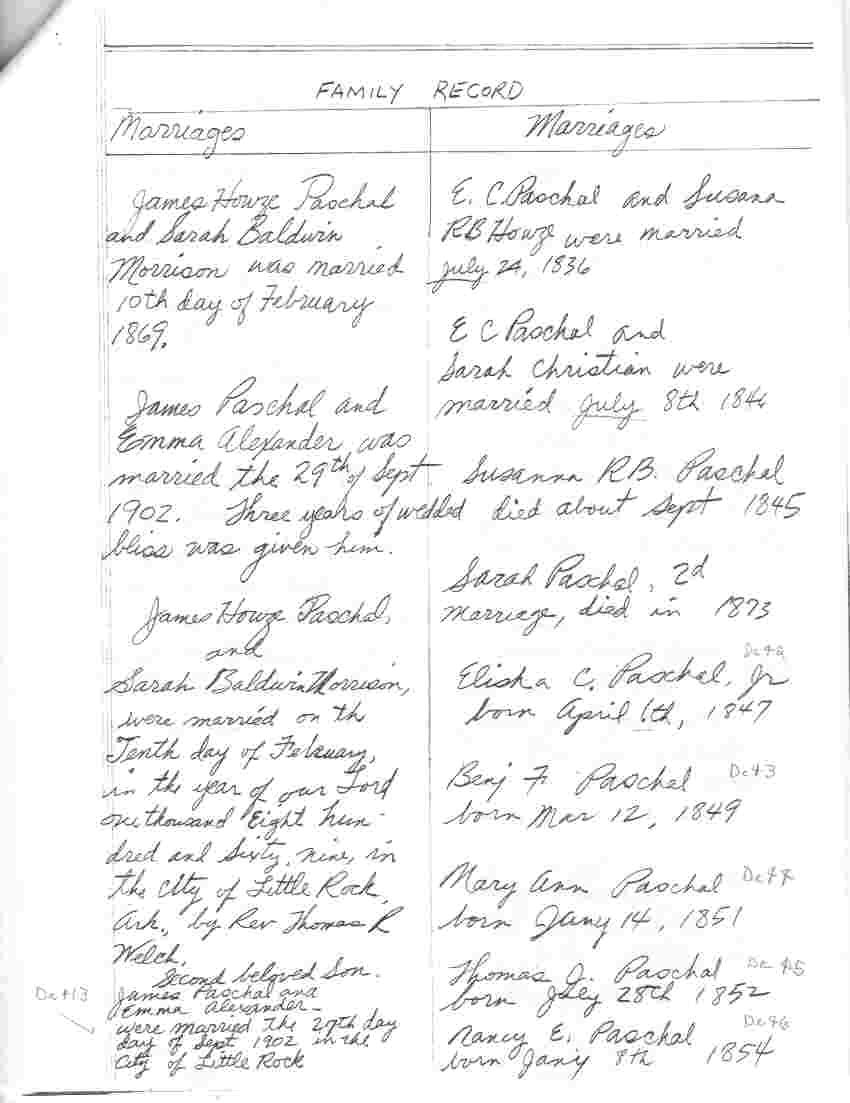 FAMILY RECORD
Marriages
James Howze Paschal
and Sarah Baldwin
Morrison was married
10th day of February
1869.
James Paschal and
Emma Alexander was
married the 29th of Sept.
1902. Three years of wedded
bliss was given him.
James Howze Paschal,
and
Sarah Baldwin Morrison,
were married on th
Tenth day of February,
in the year of our Lord
one thousand Eight hun-
dred and Sixty, nine, in
the city of Little Rock,
Ark., by Rev Thomas R
Welch.
Second beloved Son.
De413
James Paschal and
Emma Alexander-
were married the 29th day
day of Sept 1902 in the
City of Little Rock
Marriages
E. C. Paschal and Susana
RB Howze were married
July 24, 1836
E C Paschal and
Sarah Christian were
married July 8th 1846
Susanna R.B. Paschal
died about Sept 1845
Sarah Paschal, 2d
Marriage, died in 1873
De42
Elisha C. Paschal, Jr
born April 6th, 1847
Benj F. Paschal De43
born Mar 12, 1849
Mary Ann Paschal De44
born Jany 14, 1851
Thomas J. Paschal De 45
born July 28th 1852
De46
Nancy E. Paschal
born Jany 8th 1854